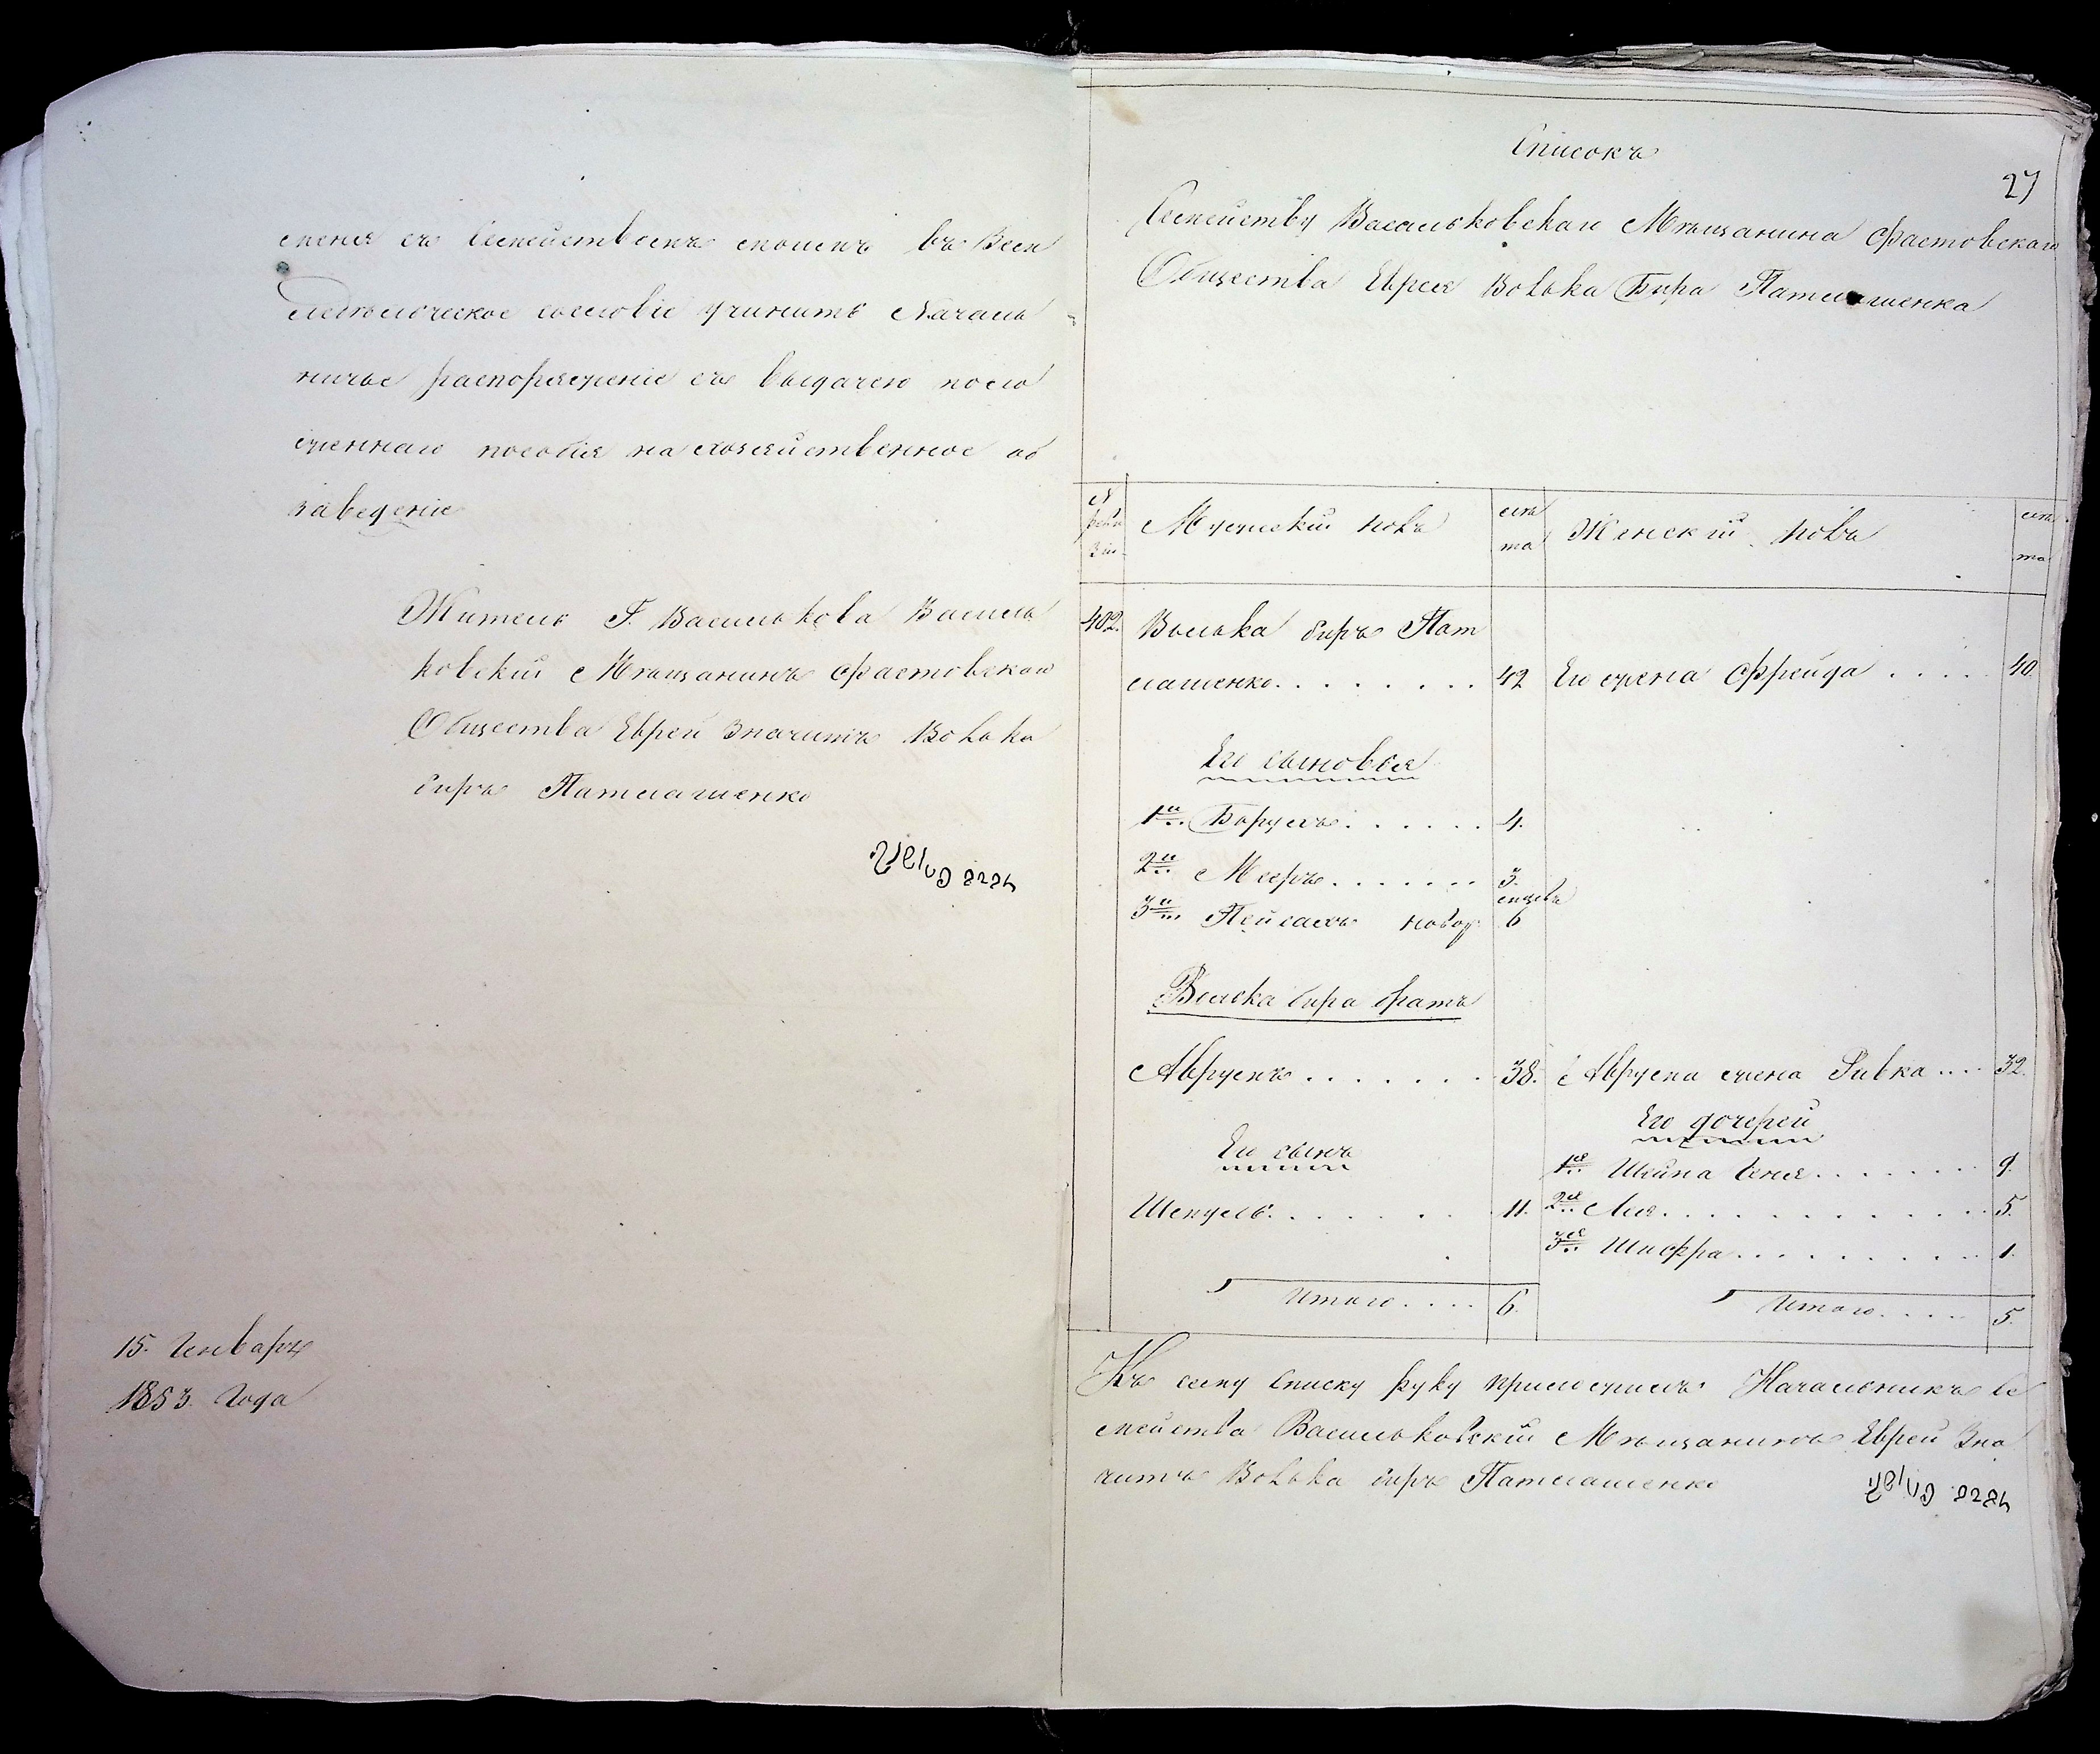 меня съ Семействомъ моимъ въ Зем
ледельческое сословіе учинить Началь
ничье распоряженіе съ выдачею поло
женнаго пособія на хозяйственное об
заведеніе
Житель Г. Василькова Василь
ковскій Мѣщанинъ Фастовскаго
Общества Еврей Значитъ Волька
биръ Патлашенко
15. Генваря
1853. Года
Списокъ
27
Семейству Васильковскаго Мѣщанина Фастовскаго
Общества Еврея Волька Бира Патлашенка
№ реви зіи
Мужескій полъ
лѣта
Женскій полъ
лѣта
402. Волька биръ Пат
лашенко. . . . . . . . 42 Его жена Фрейда . . . . . 40.
Его сыновья
1й Борухъ. . . . . . 4.
2й Мееръ. . . . . . . 3.
месяцевъ
3й Пейсахъ новор 6
Волька бира братъ
Аврумъ . . . . . . . 38. Аврума жена Ривка .... 32.
Его дочерей
Его сынъ
1я Шейна Геня. . . . . . . 9.
Шмуль. . . . . . . 11. 2я Лея. . . . . . . . . . . . . 5.
3я Шифра. . . . . . . . . . 1.
Итого. . . . 6. Итого. . . . . 5.
Къ сему списку руку приложилъ Начальникъ Се
мейства Васильковскій Мѣщанинъ Еврей Зна
читъ Волька биръ Патлашенко